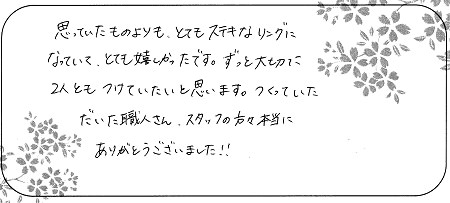 思っていたものよりも、とてもステキなリングに
なっていて、とても嬉しかったです。ずっと大切に
2人ともつけていたいと思います。つくっていた
だいた職人さん、スタッフの方々本当に
ありがとうございました!!